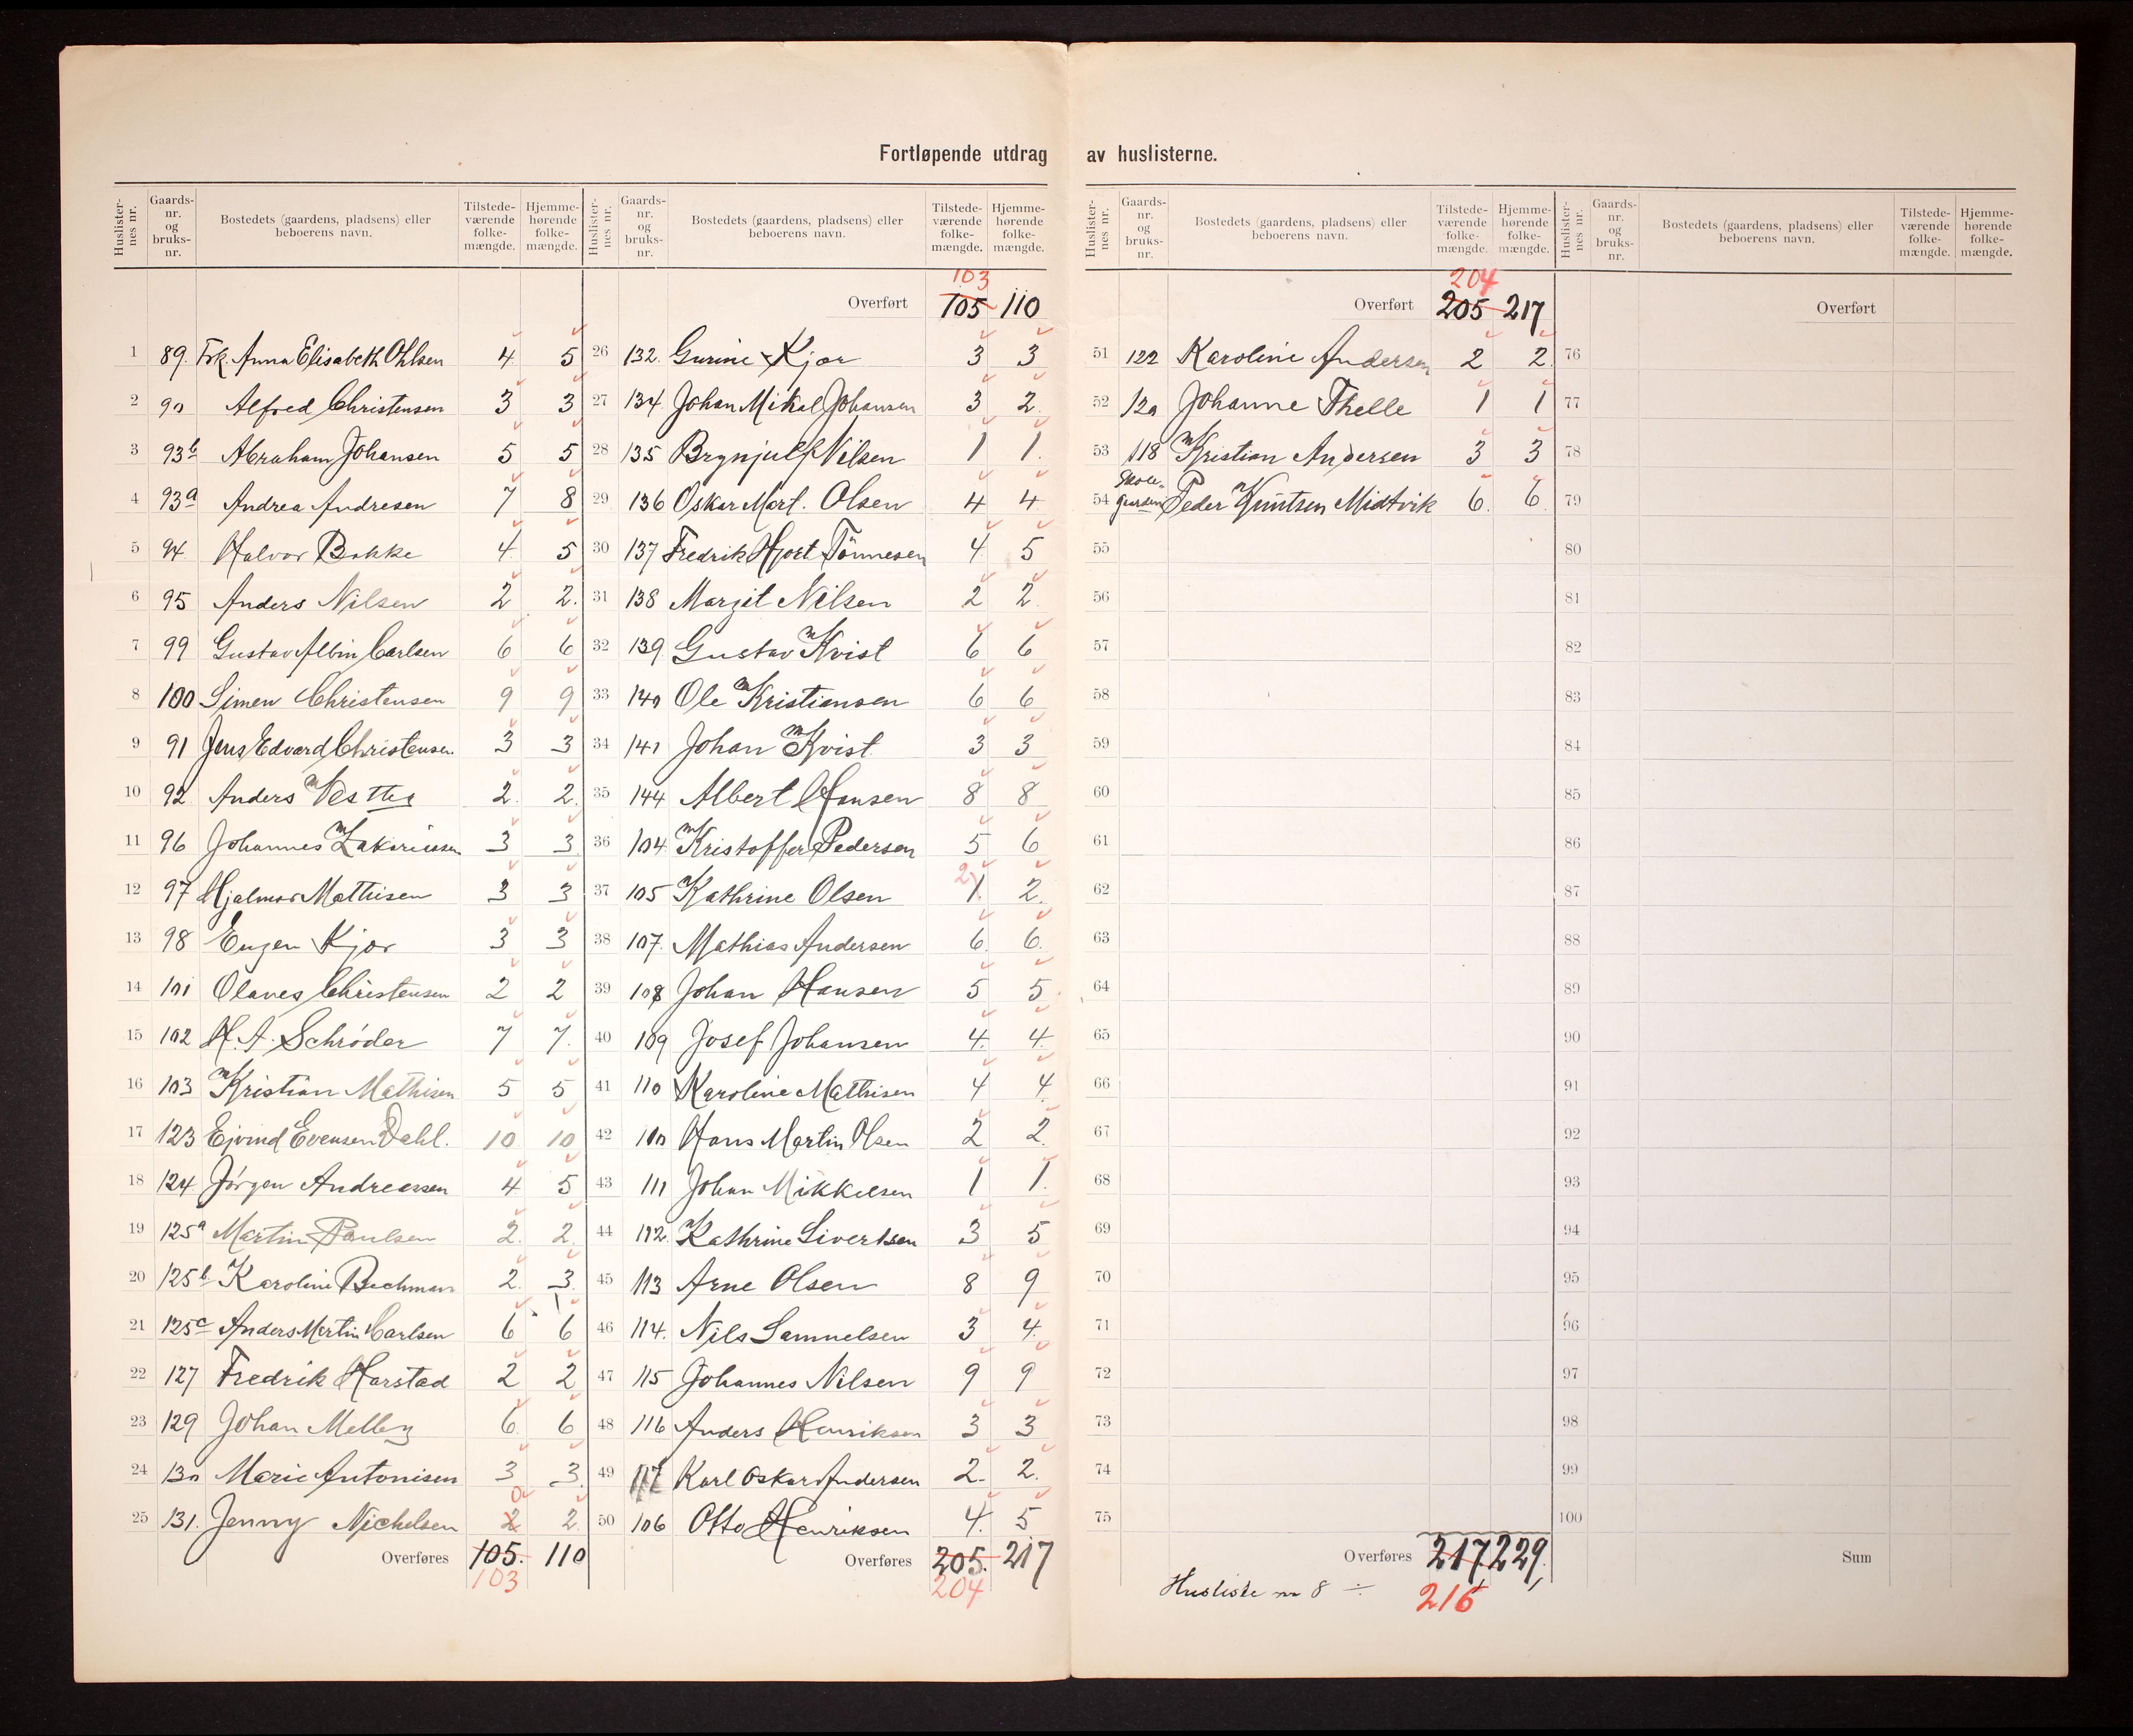 Fortløpende utdrag av huslisterne.
Huslister-nes nr. Gaards-nr. og bruks-nr. Bostedets (gaardens, pladsens) eller beboerens navn. Tilstede-værende folke-mængde. Hjemme-hørende folke-mængde.
1 89. Frk. Anna Elisabeth Ohlsen 4 5
2 90 Alfred Christensen 3 3
3 93b Abraham Johansen 5 5
4 93a Andrea Andresen 7 8
5 94 Halvor Bakke 4 5
6 95 Anders Nilsen 2 2.
7 99 Gustav Albin Carlsen 6 6
8 100 Simen Christensen 9 9
9 91 Jens Edvard Christensen 3 3
10 92 Anders 2. 2.
11 96 Johannes Zakariassen 3 3
12 97 Hjalmar Mathisen 3 3
13 98 Eugen Kjær 3 3
14 101 Olaves Christensen 2 2
15 102 H. A. Schrøder 7 7.
16 103 Kristian Mathisen 5 5
17 123 Ejvind Evensen Dahl. 10 10
18 124 Jørgen Andreassen 4 5
19 125a Martin Paulsen 2. 2.
20 125b Karoline Bachman 2. 3.
21 125c Anders Martin Carlsen 6 6
22 127 Fredrik Harstad 2 2
23 129 Johan Melby 6 6
24 130 Marie Antonisen 3 3.
25 131. Jenny Nichelsen 0 2 2
Overføres 105. 110
103
Huslister-nes nr. Gaards-nr. og bruks-nr. Bostedets (gaardens, pladsens) eller beboerens navn. Tilstede-værende folke-mængde. Hjemme-hørende folke-mængde.
103
Overført 105 110
26 132. Gurine Kjær 3 3
27 134 Johan Mikal Johansen 3 2.
28 135 Brynjulf Nilsen 1 1.
29 136 Oskar Mart. Olsen 4 4
30 137 Fredrik Hjort Tönnesen 4 5
31 138 Margit Nilsen 2 2
32 139 Gustav Kvist 6 6
33 140 Ole Kristiansen 6 6
34 141 Johan Kvist 3 3
35 144 Albert Hansen 8 8
36 104 Kristoffer Pedersen 5 6
37 105 Kathrine Olsen 2 1. 2.
38 107. Mathias Andersen 6. 6.
39 108 Johan Hansen 5 5
40 109 Josef Johansen 4. 4.
41 110 Karoline Mathisen 4 4
42 110 Hans Martin Olsen 2 2
43 111 Johan Mikkelsen 1 1.
44 112. Kathrine Sivertsen 3 5
45 113 Arne Olsen 8 9
46 114. Nils Samuelsen 3 4.
47 115 Johannes Nilsen 9 9
48 116 Anders Henriksen 3 3
49 117 Karl Oskar Andersen 2. 2.
50 106 Otto Henriksen 4. 5
Overføres 205. 217
204
Huslister-nes nr. Gaards-nr. og bruks-nr. Bostedets (gaardens, pladsens) eller beboerens navn. Tilstede-værende folke-mængde. Hjemme-hørende folke-mængde.
204
Overført 205 217
51 122 Karoline Andersen 2 2.
52 120 Johanne Thelle 1 1
53 118 Kristian Andersen 3 3
54 Skole- Peder Knutsen Midtvik 6. 6.
55
56
57
58
59
60
61
62
63
64
65
66
67
68
69
70
71
72
73
74
75
Overføres 217, 229,
Husliste nr 8 ÷ 216
Huslister-nes nr. Gaards-nr. og bruks-nr. Bostedets (gaardens, pladsens) eller beboerens navn. Tilstede-værende folke-mængde. Hjemme-hørende folke-mængde.
Overført
76
77
78
79
80
81
82
83
84
85
86
87
88
89
90
91
92
93
94
95
96
97
98
99
100
Sum